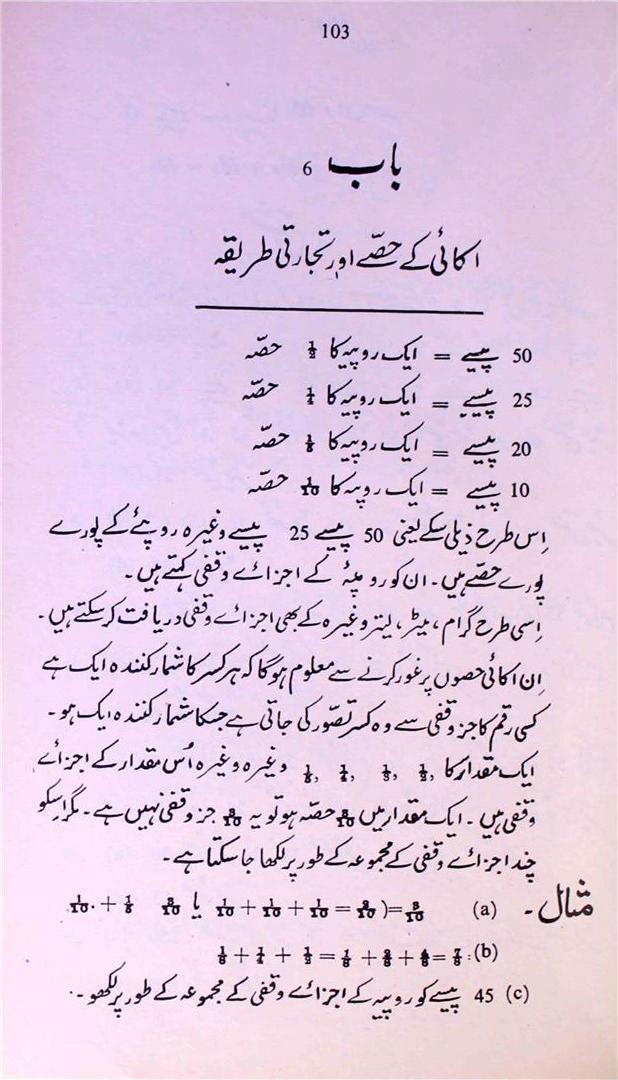 103
باب 6
اکائی کے حصّے اور تجارتی طریقہ
50 پیسے = ایک روپیہ کا ½ حصّہ
25 پیسے = ایک روپیہ کا ¼ حصّہ
20 پیسے = ایک روپیہ کا ⅕ حصّہ
10 پیسے = ایک روپیہ کا 1/10 حصّہ
اِس طرح ذیلی سکے یعنی 50 پیسے 25 پیسے وغیرہ روپئے کے پورے
پورے حصّے ہیں۔ ان کو روپیۂ کے اجزائے وقفی کہتے ہیں۔
اِسی طرح گرام، میٹر، لیتر وغیرہ کے بھی اجزائے وقفی دریافت کرسکتے ہیں۔
اِن اکائی حصوں پر غور کرنے سے معلوم ہوگا کہ ہر کسر کا شمار کنندہ ایک ہے
کسی رقم کا جز وقفی سے وہ کسر تصوّر کی جاتی ہے جسکا شمار کنندہ ایک ہو۔
ایک مقدار کا وغیرہ وغیرہ اُس مقدار کے اجزائے
وقفی ہیں۔ ایک مقدار میں 3/10 حصّہ ہو تو یہ 3/10 جز وقفی نہیں ہے۔ مگر اسکو
چند اجزائے وقفی کے مجموعہ کے طور پر لکھا جاسکتا ہے۔
مثال۔ (a) 3/10 =( 3/10 = 1/10 + 1/10 + 1/10 یا 3/10 1/5 + 1/10
(b) 7/8 = 4/8 + 2/8 + 1/8 = 1/2 + 1/4 + 1/8
(c) 45 پیسے کو روپیہ کے اجزائے وقفی کے مجموعہ کے طور پر لکھو۔